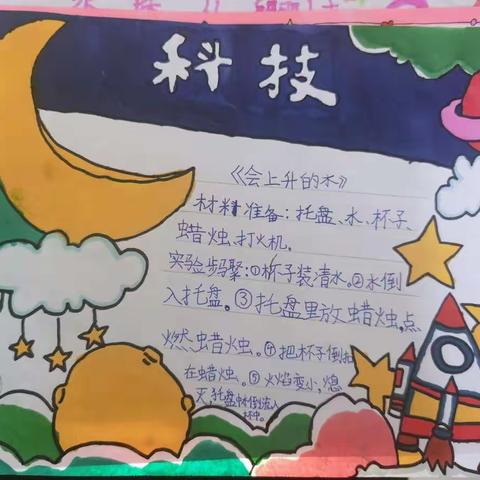 科技
《会上升的水》
材料准备:托盘、水、杯子、
蜡烛、打火机。
实验步骤:①杯子装清水。②水倒
入托盘。③托盘里放蜡烛,点
燃蜡烛。④把杯子倒扣
在蜡烛。⑤火焰变小,熄
灭,托盘中水倒流入
杯中。